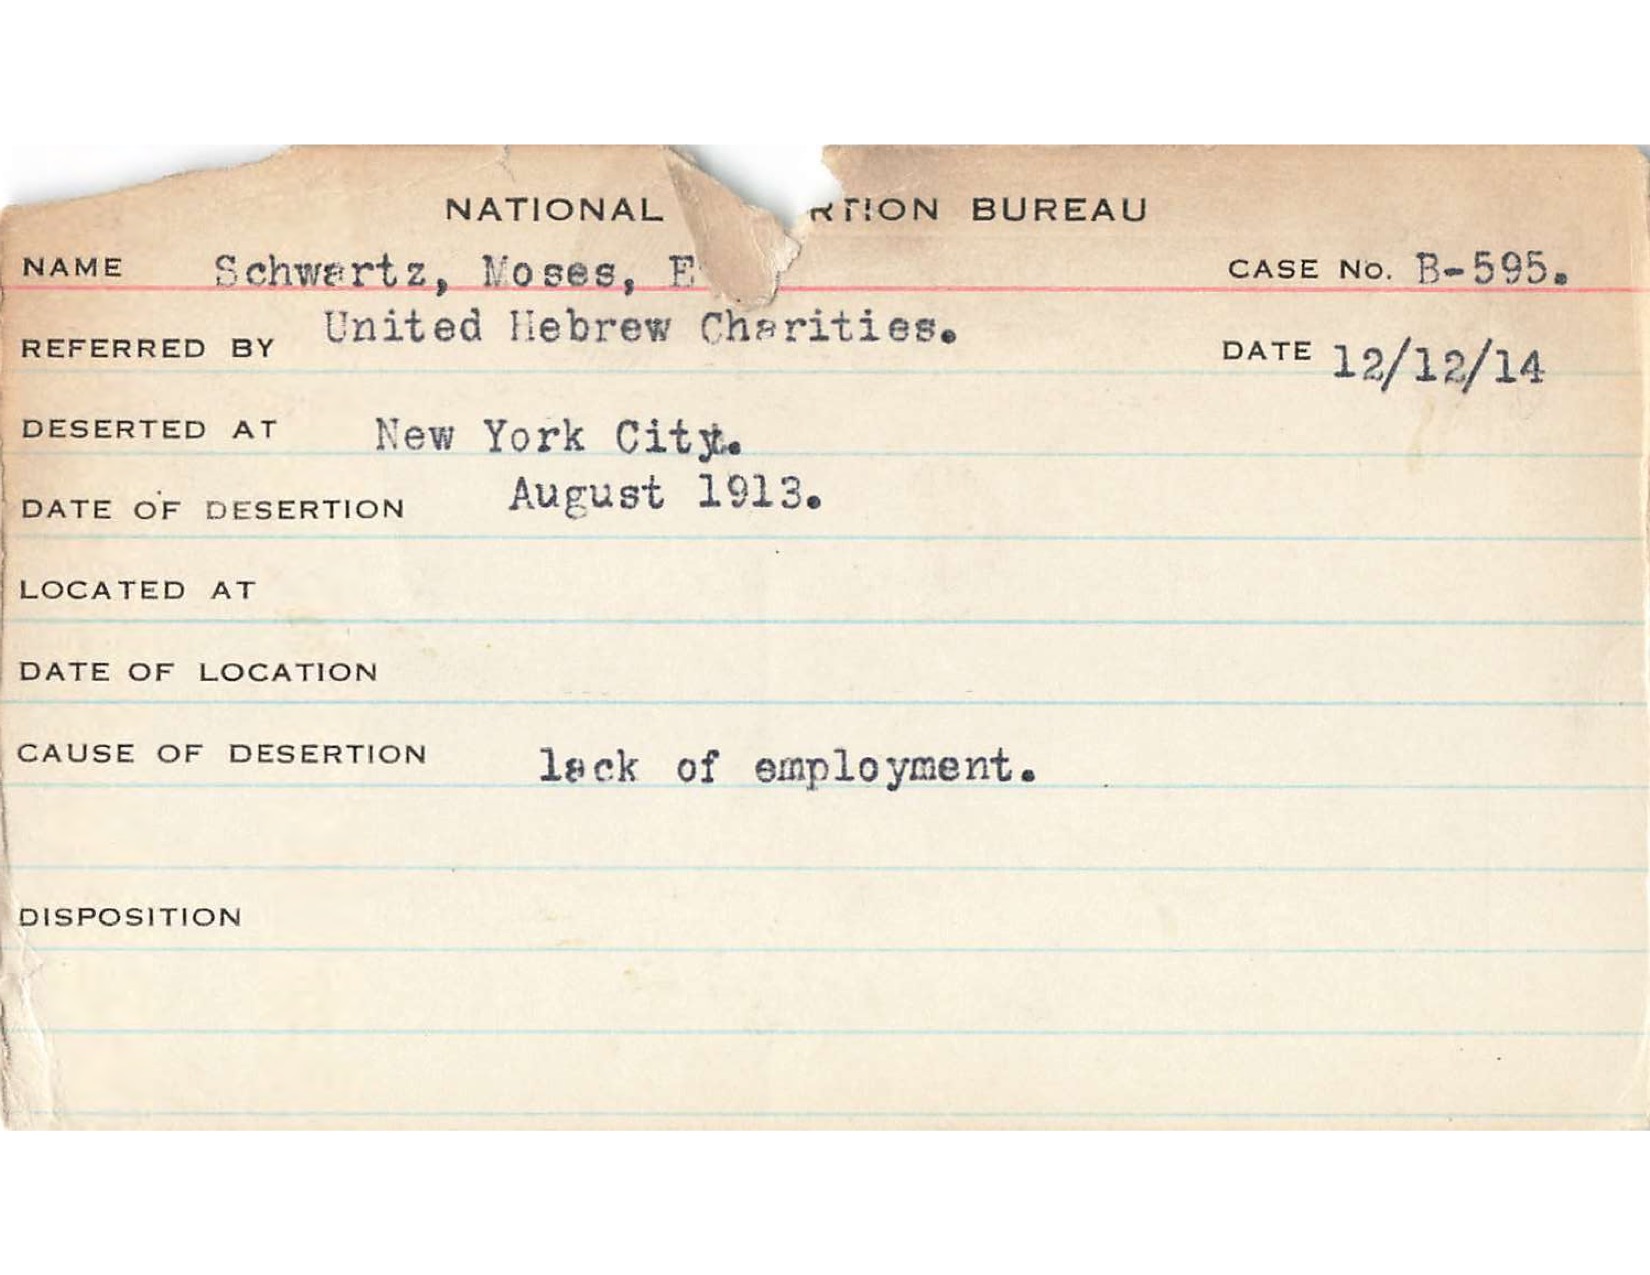 NATIONAL RTION BUREAU
NAME Schwartz, Moses, CASE No. B-595.
REFERRED BY United Hebrew Charities. DATE 12/12/14
DESERTED AT New York City.
DATE OF DESERTION August 1913.
LOCATED AT
DATE OF LOCATION
CAUSE OF DESERTION lack of employment.
DISPOSITION